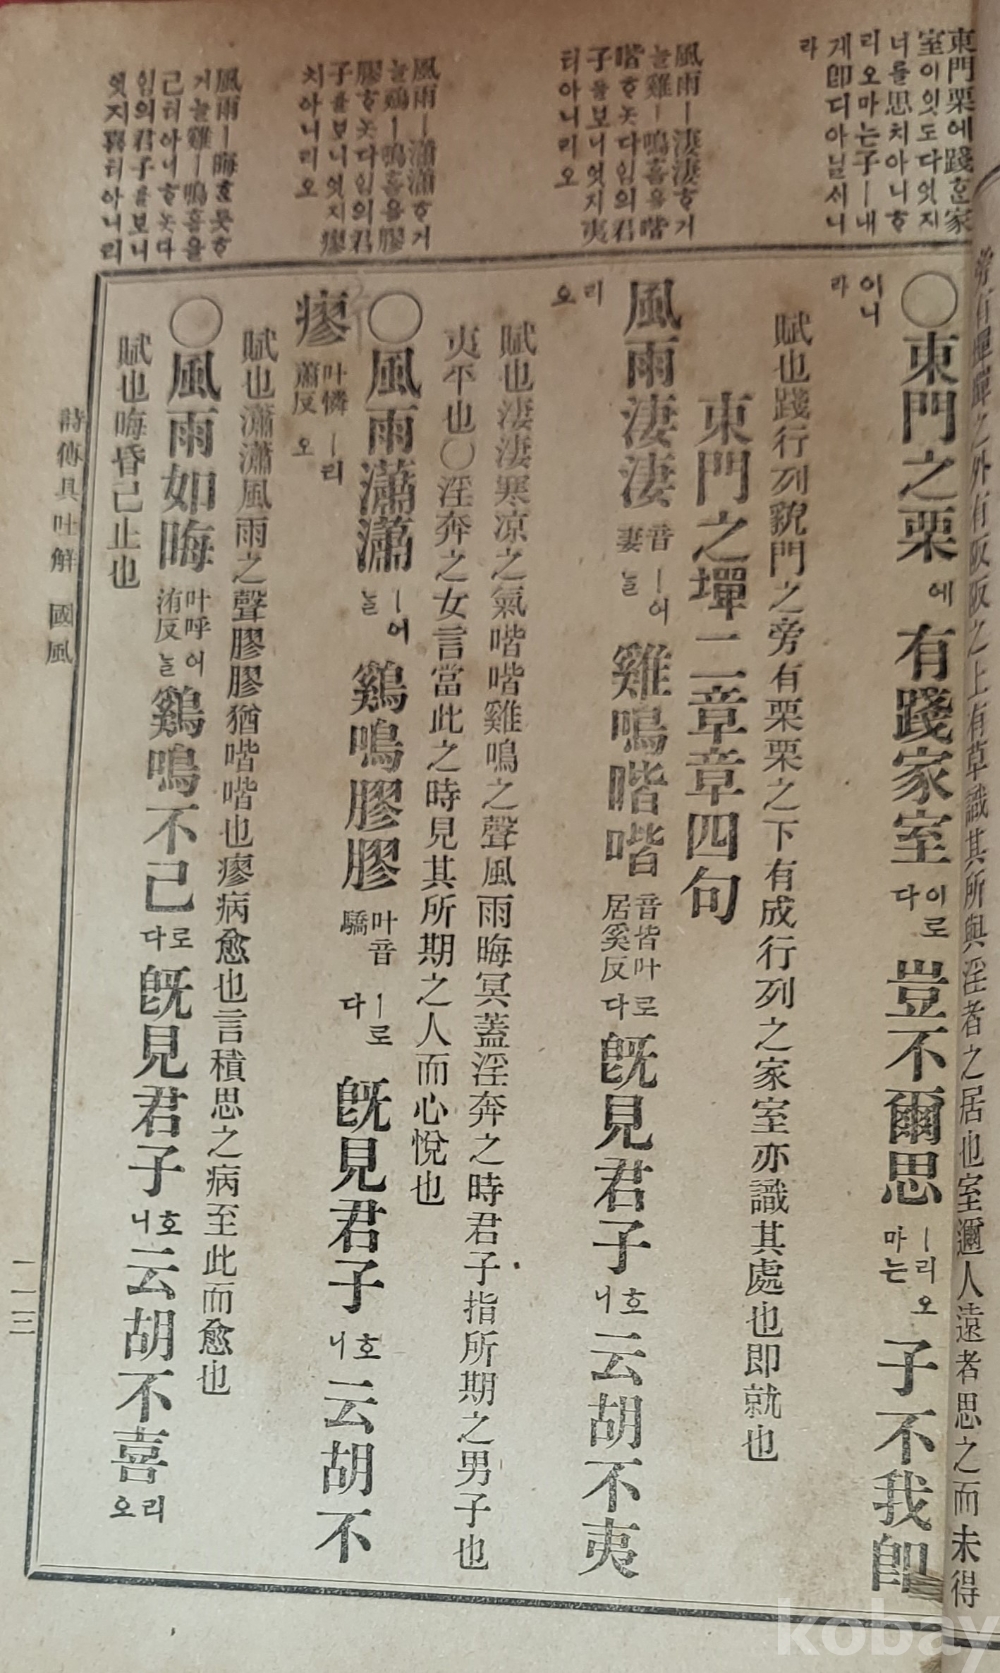 東門栗에踐ᄒᆞᆫ家
室이잇도다엇지
너를思치아니ᄒᆞ
리오마는子ㅣ내
게卽디아닐ᄉᆡ니
라
風雨ㅣ凄凄ᄒᆞ거
늘雞ㅣ鳴홈을喈
喈ᄒᆞ놋다임의君
子를보니엇지夷
티아니리오
風雨ㅣ瀟瀟ᄒᆞ거
늘鷄ㅣ鳴홈을膠
膠ᄒᆞ놋다임의君
子를보니엇지瘳
치아니리오
風雨ㅣ晦ᄒᆞᆫ듯ᄒᆞ
거늘雞ㅣ鳴홈을
己티아니ᄒᆞ놋다
임의君子를보니
엇지喜티아니리
之外有阪阪之上有草識其所與淫者之居也室邇人遠者思之而未得
○東門之栗에有踐家室이로다豈不爾思ㅣ리오마는子不我卽
이니라
賦也踐行列貌門之旁有栗栗之下有成行列之家室亦識其處也即就也
東門之墠二章章四句
風雨淒淒音妻ㅣ어늘雞鳴喈喈音皆叶居奚反로다旣見君子호니云胡不夷
리오
賦也淒淒寒凉之氣喈喈雞鳴之聲風雨晦冥蓋淫奔之時君子指所期之男子也
夷平也○淫奔之女言當此之時見其所期之人而心悅也
○風雨瀟瀟ㅣ어늘鷄鳴膠膠叶音驕ㅣ로다旣見君子호니云胡不
瘳叶憐蕭反ㅣ리오
賦也瀟瀟風雨之聲膠膠猶喈喈也瘳病愈也言積思之病至此而愈也
○風雨如晦叶呼洧反어늘鷄鳴不己로다旣見君子호니云胡不喜리오
賦也晦昏己止也
詩傳具吐解 國風
一一三
kobay